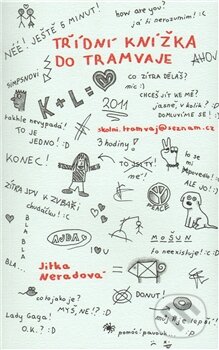 NÉÉ! JEŠTĚ 5 MINUT!
how are you?
já ti nerozumím! :c
TŘÍDNÍ KNÍŽKA
DO TRAMVAJE
AHOJ
SIMPSNOVI
CO ZÍTRA DĚLÁŠ?
nic :)
K + L =
2011
CHCEŠ JÍT KE MĚ?
jasně, v kolik?
DOMLUVÍME SE! :)
takhle nevypadá!
TO JE
JEDNO! :D
skolni.tramvaj@seznam.cz
3 hodiny!
KONEC!
to se mi
ALE JO! :)
ZÍTRA JDU K ZUBAŘI
chudáčku! :c
BLA
BLA
BLA
BLA...
AUDA
MOŠUN
to neexistuje! :c
Jitka
Neradová
co to jako je?
MYŠ, NE!? :D
DONUT!
Lady Gaga!
O.K.? :D
pomóc! pavouk...